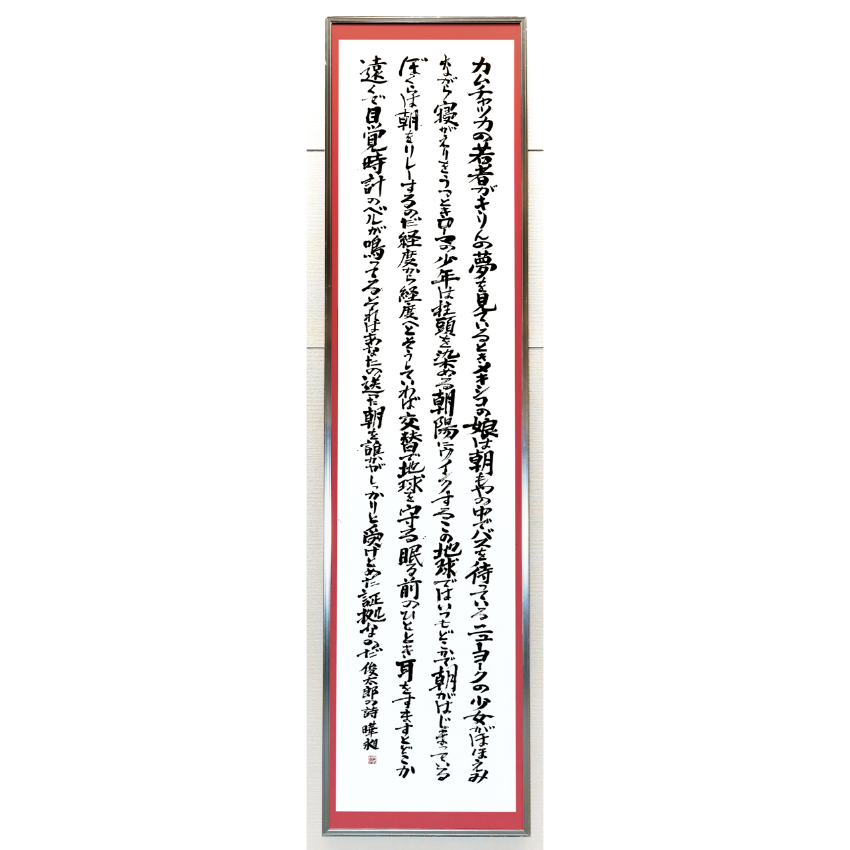 カムチャッカの若者がきりんの夢を見ているときメキシコの娘は朝もやの中でバスを待っているニューヨークの少女がほほえみ
ながら寝がえりをうつときローマの少年は柱頭を染める朝陽にウインクするこの地球ではいつもどこかで朝がはじまっている
ぼくらは朝をリレーするのだ経度から経度へとそうしていわば交替で地球を守る眠る前のひととき耳をすますとどこか
遠くで目覚時計のベルが鳴ってるそれはあなたの送った朝を誰かがしっかりと受けとめた証拠なのだ 俊太郎の詩